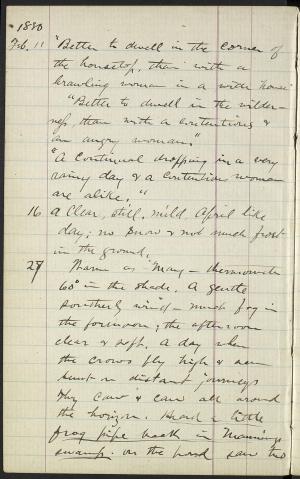 1880
Feb. 11 "Better to dwell in the corner of
the housetop, than with a
brawling woman in a wide house"
"Better to dwell in the wilder-
ness, than with a contentious &
an angry woman."
"A continual dropping in a very
rainy day & a contentious woman
are alike."
16 a Clear, still, mild, April like
day; no snow & not much frost
in the ground.
27 Warm as May - thermometer
60° in the shade. A gentle
southerly wind - much fog in
the forenoon; the afternoon
clear & soft. A day when
the crows fly high & seem
bent on distant journeys
They caw & caw all around
the horizon. Heard a little
frog pipe back in Mannings
swamp. on the pond saw two